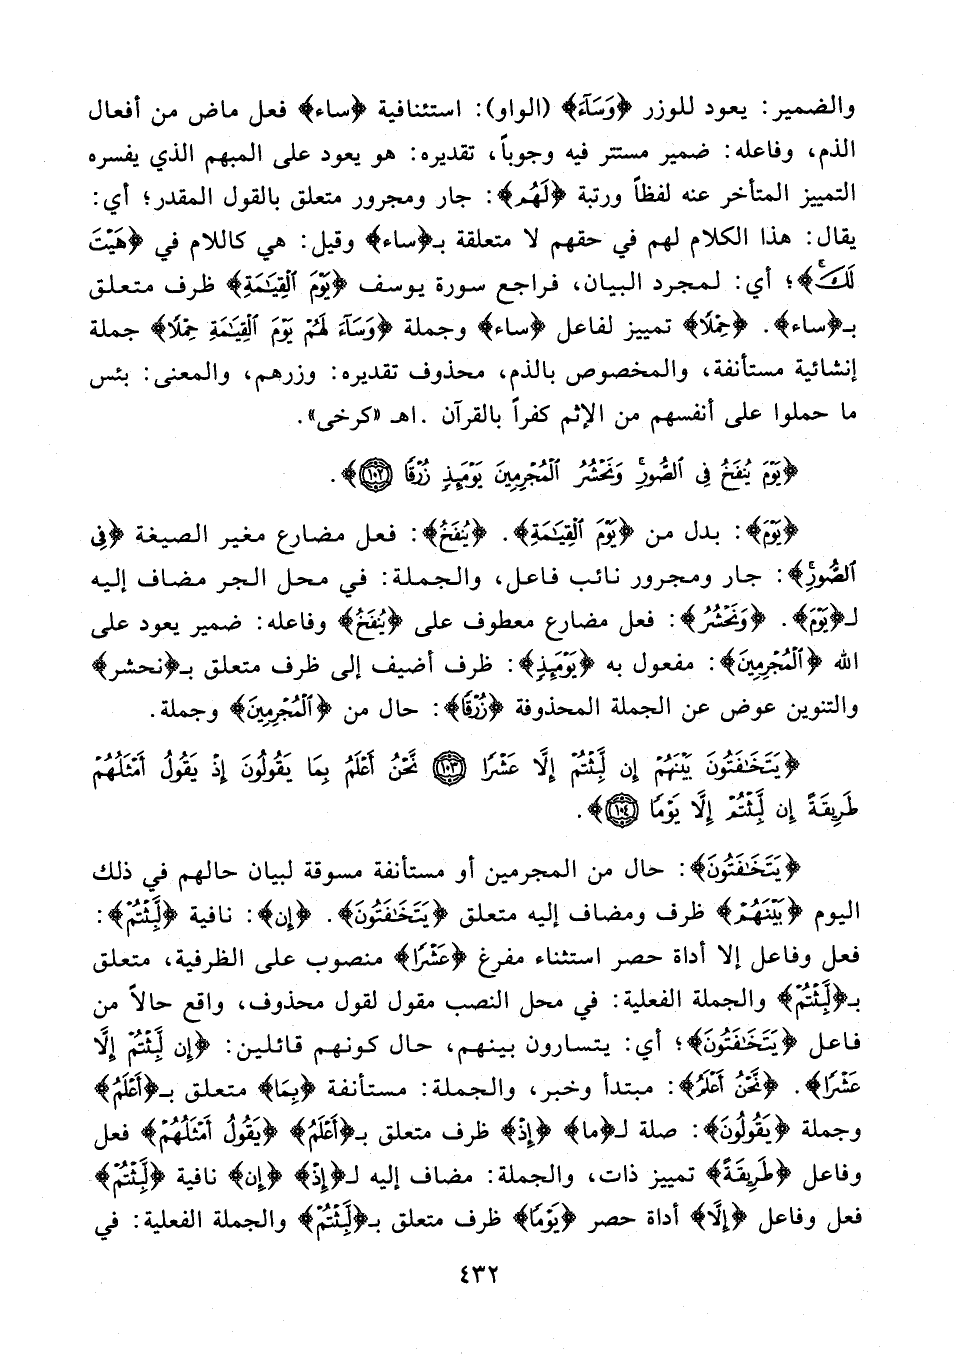 والضمير: يعود للوزر ﴿وَسَآءَ﴾ (الواو): استئنافية ﴿ساء﴾ فعل ماض من أفعال
الذم، وفاعله: ضمير مستتر فيه وجوباً، تقديره: هو يعود على المبهم الذي يفسره
التمييز المتأخر عنه لفظاً ورتبة ﴿لَهُمْ﴾: جار ومجرور متعلق بالقول المقدر؛ أي:
يقال: هذا الكلام لهم في حقهم لا متعلقة بـ﴿ساء﴾ وقيل: هي كاللام في ﴿هَيْتَ
لَكَ﴾؛ أي: لمجرد البيان، فراجع سورة يوسف ﴿يَوْمَ ٱلْقِيَٰمَةِ﴾ ظرف متعلق
بـ﴿ساء﴾. ﴿حِمْلًا﴾ تمييز لفاعل ﴿ساء﴾ وجملة ﴿وَسَآءَ لَهُمْ يَوْمَ ٱلْقِيَٰمَةِ حِمْلًا﴾ جملة
إنشائية مستأنفة، والمخصوص بالذم، محذوف تقديره: وزرهم، والمعنى: بئس
ما حملوا على أنفسهم من الإثم كفراً بالقرآن .اهـ «كرخى».
﴿يَوْمَ يُنفَخُ فِى ٱلصُّورِ ۚ وَنَحْشُرُ ٱلْمُجْرِمِينَ يَوْمَئِذٍ زُرْقًا ١٠٢﴾.
﴿يَوْمَ﴾: بدل من ﴿يَوْمَ ٱلْقِيَٰمَةِ﴾. ﴿يُنفَخُ﴾: فعل مضارع مغير الصيغة ﴿فِى
ٱلصُّورِ ۚ﴾: جار ومجرور نائب فاعل، والجملة: في محل الجر مضاف إليه
لـ﴿يَوْمَ﴾. ﴿وَنَحْشُرُ﴾: فعل مضارع معطوف على ﴿يُنفَخُ﴾ وفاعله: ضمير يعود على
الله ﴿ٱلْمُجْرِمِينَ﴾: مفعول به ﴿يَوْمَئِذٍ﴾: ظرف أضيف إلى ظرف متعلق بـ﴿نحشر﴾
والتنوين عوض عن الجملة المحذوفة ﴿زُرْقًا﴾: حال من ﴿ٱلْمُجْرِمِينَ﴾ وجملة.
﴿يَتَخَٰفَتُونَ بَيْنَهُمْ إِن لَّبِثْتُمْ إِلَّا عَشْرًا ١٠٣ نَّحْنُ أَعْلَمُ بِمَا يَقُولُونَ إِذْ يَقُولُ أَمْثَلُهُمْ
طَرِيقَةً إِن لَّبِثْتُمْ إِلَّا يَوْمًا ١٠٤﴾.
﴿يَتَخَٰفَتُونَ﴾: حال من المجرمين أو مستأنفة مسوقة لبيان حالهم في ذلك
اليوم ﴿بَيْنَهُمْ﴾ ظرف ومضاف إليه متعلق ﴿يَتَخَٰفَتُونَ﴾. ﴿إِن﴾: نافية ﴿لَّبِثْتُمْ﴾:
فعل وفاعل إلا أداة حصر استثناء مفرغ ﴿عَشْرًا﴾ منصوب على الظرفية، متعلق
بـ﴿لَّبِثْتُمْ﴾ والجملة الفعلية: في محل النصب مقول لقول محذوف، واقع حالاً من
فاعل ﴿يَتَخَٰفَتُونَ﴾؛ أي: يتسارون بينهم، حال كونهم قائلين: ﴿إِن لَّبِثْتُمْ إِلَّا
عَشْرًا﴾. ﴿نَّحْنُ أَعْلَمُ﴾: مبتدأ وخبر، والجملة: مستأنفة ﴿بِمَا﴾ متعلق بـ﴿أَعْلَمُ﴾
وجملة ﴿يَقُولُونَ﴾: صلة لـ﴿ما﴾ ﴿إِذْ﴾ ظرف متعلق بـ﴿أَعْلَمُ﴾ ﴿يَقُولُ أَمْثَلُهُمْ﴾ فعل
وفاعل ﴿طَرِيقَةً﴾ تمييز ذات، والجملة: مضاف إليه لـ﴿إِذْ﴾ ﴿إِن﴾ نافية ﴿لَّبِثْتُمْ﴾
فعل وفاعل ﴿إِلَّا﴾ أداة حصر ﴿يَوْمًا﴾ ظرف متعلق بـ﴿لَّبِثْتُمْ﴾ والجملة الفعلية: في
٤٣٢